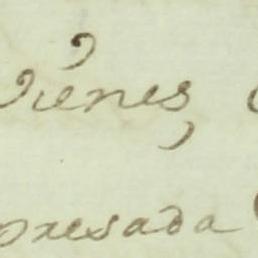 vienes,
presada